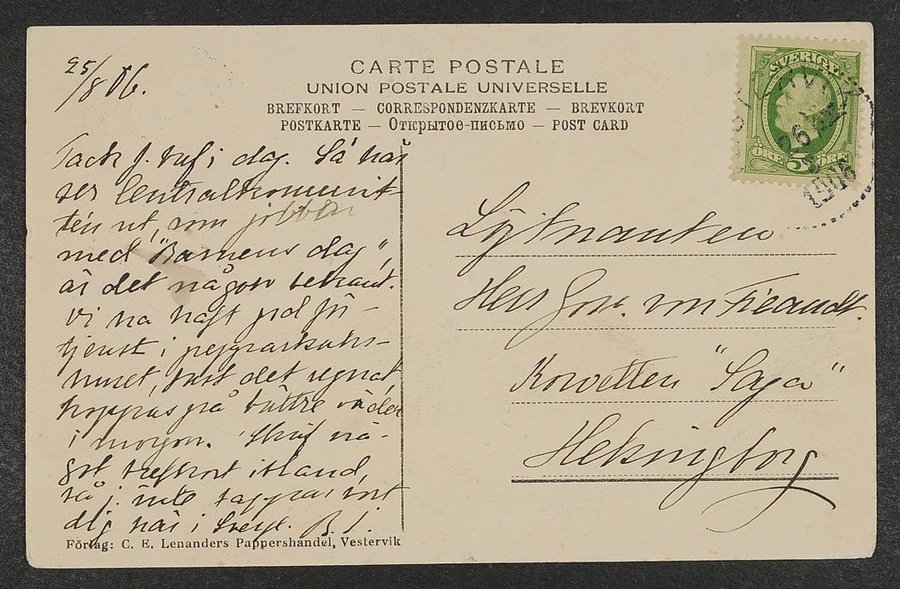 25/8 06.
CARTE POSTALE
UNION POSTALE UNIVERSELLE
BREFKORT — CORRESPONDENZKARTE — BREVKORT
POSTKARTE — Открытое-письмо — POST CARD
SVERIGE
ÖRE 5 ÖRE
26
1906
Tack f. bref i dag. Så här
ser Centralkommit-
tén ut, som jobbar
med "Barnens dag",
är det någon bekant.
Vi ha haft god för-
tjenst i pepparkaks-
huset, men det regnat
hoppas på bättre väder
i morgon. Skrif nå-
got brefkort ibland,
så j. inte tappar bort
dig här i Sverge. B. I.
Löjtnanten
Herr Gos. von Fieandt.
Korvetten "Saga"
Helsingborg
Förlag: C. E. Lenanders Pappershandel, Vestervik